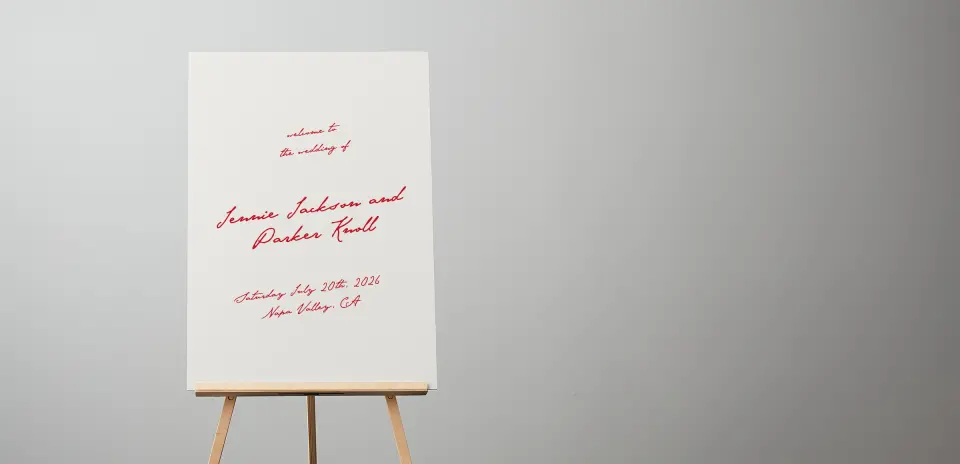 welcome to
the wedding of
Jennie Jackson and
Parker Knoll
Saturday July 20th, 2026
Napa Valley, CA